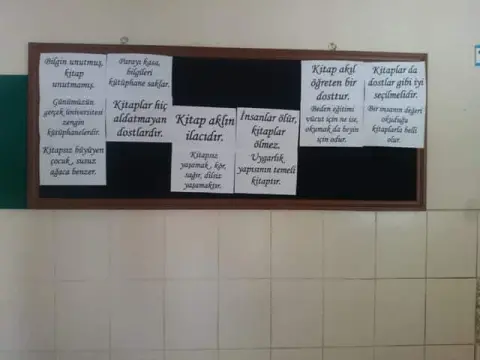 Bilgin unutmuş,
kitap
unutmamış.
Günümüzün
gerçek üniversitesi
zengin
kütüphanelerdir.
Kitapsız büyüyen
çocuk, susuz
ağaca benzer.
Parayı kasa,
bilgileri
kütüphane saklar.
Kitaplar hiç
aldatmayan
dostlardır.
Kitap aklın
ilacıdır.
Kitapsız
yaşamak, kör,
sağır, dilsiz
yaşamaktır.
İnsanlar ölür,
kitaplar
ölmez.
Uygarlık
yapısının temeli
kitaptır.
Kitap akıl
öğreten bir
dosttur.
Beden eğitimi
vücut için ne ise,
okumak da beyin
için odur.
Kitaplar da
dostlar gibi iyi
seçilmelidir.
Bir insanın değeri
okuduğu
kitaplarla belli
olur.